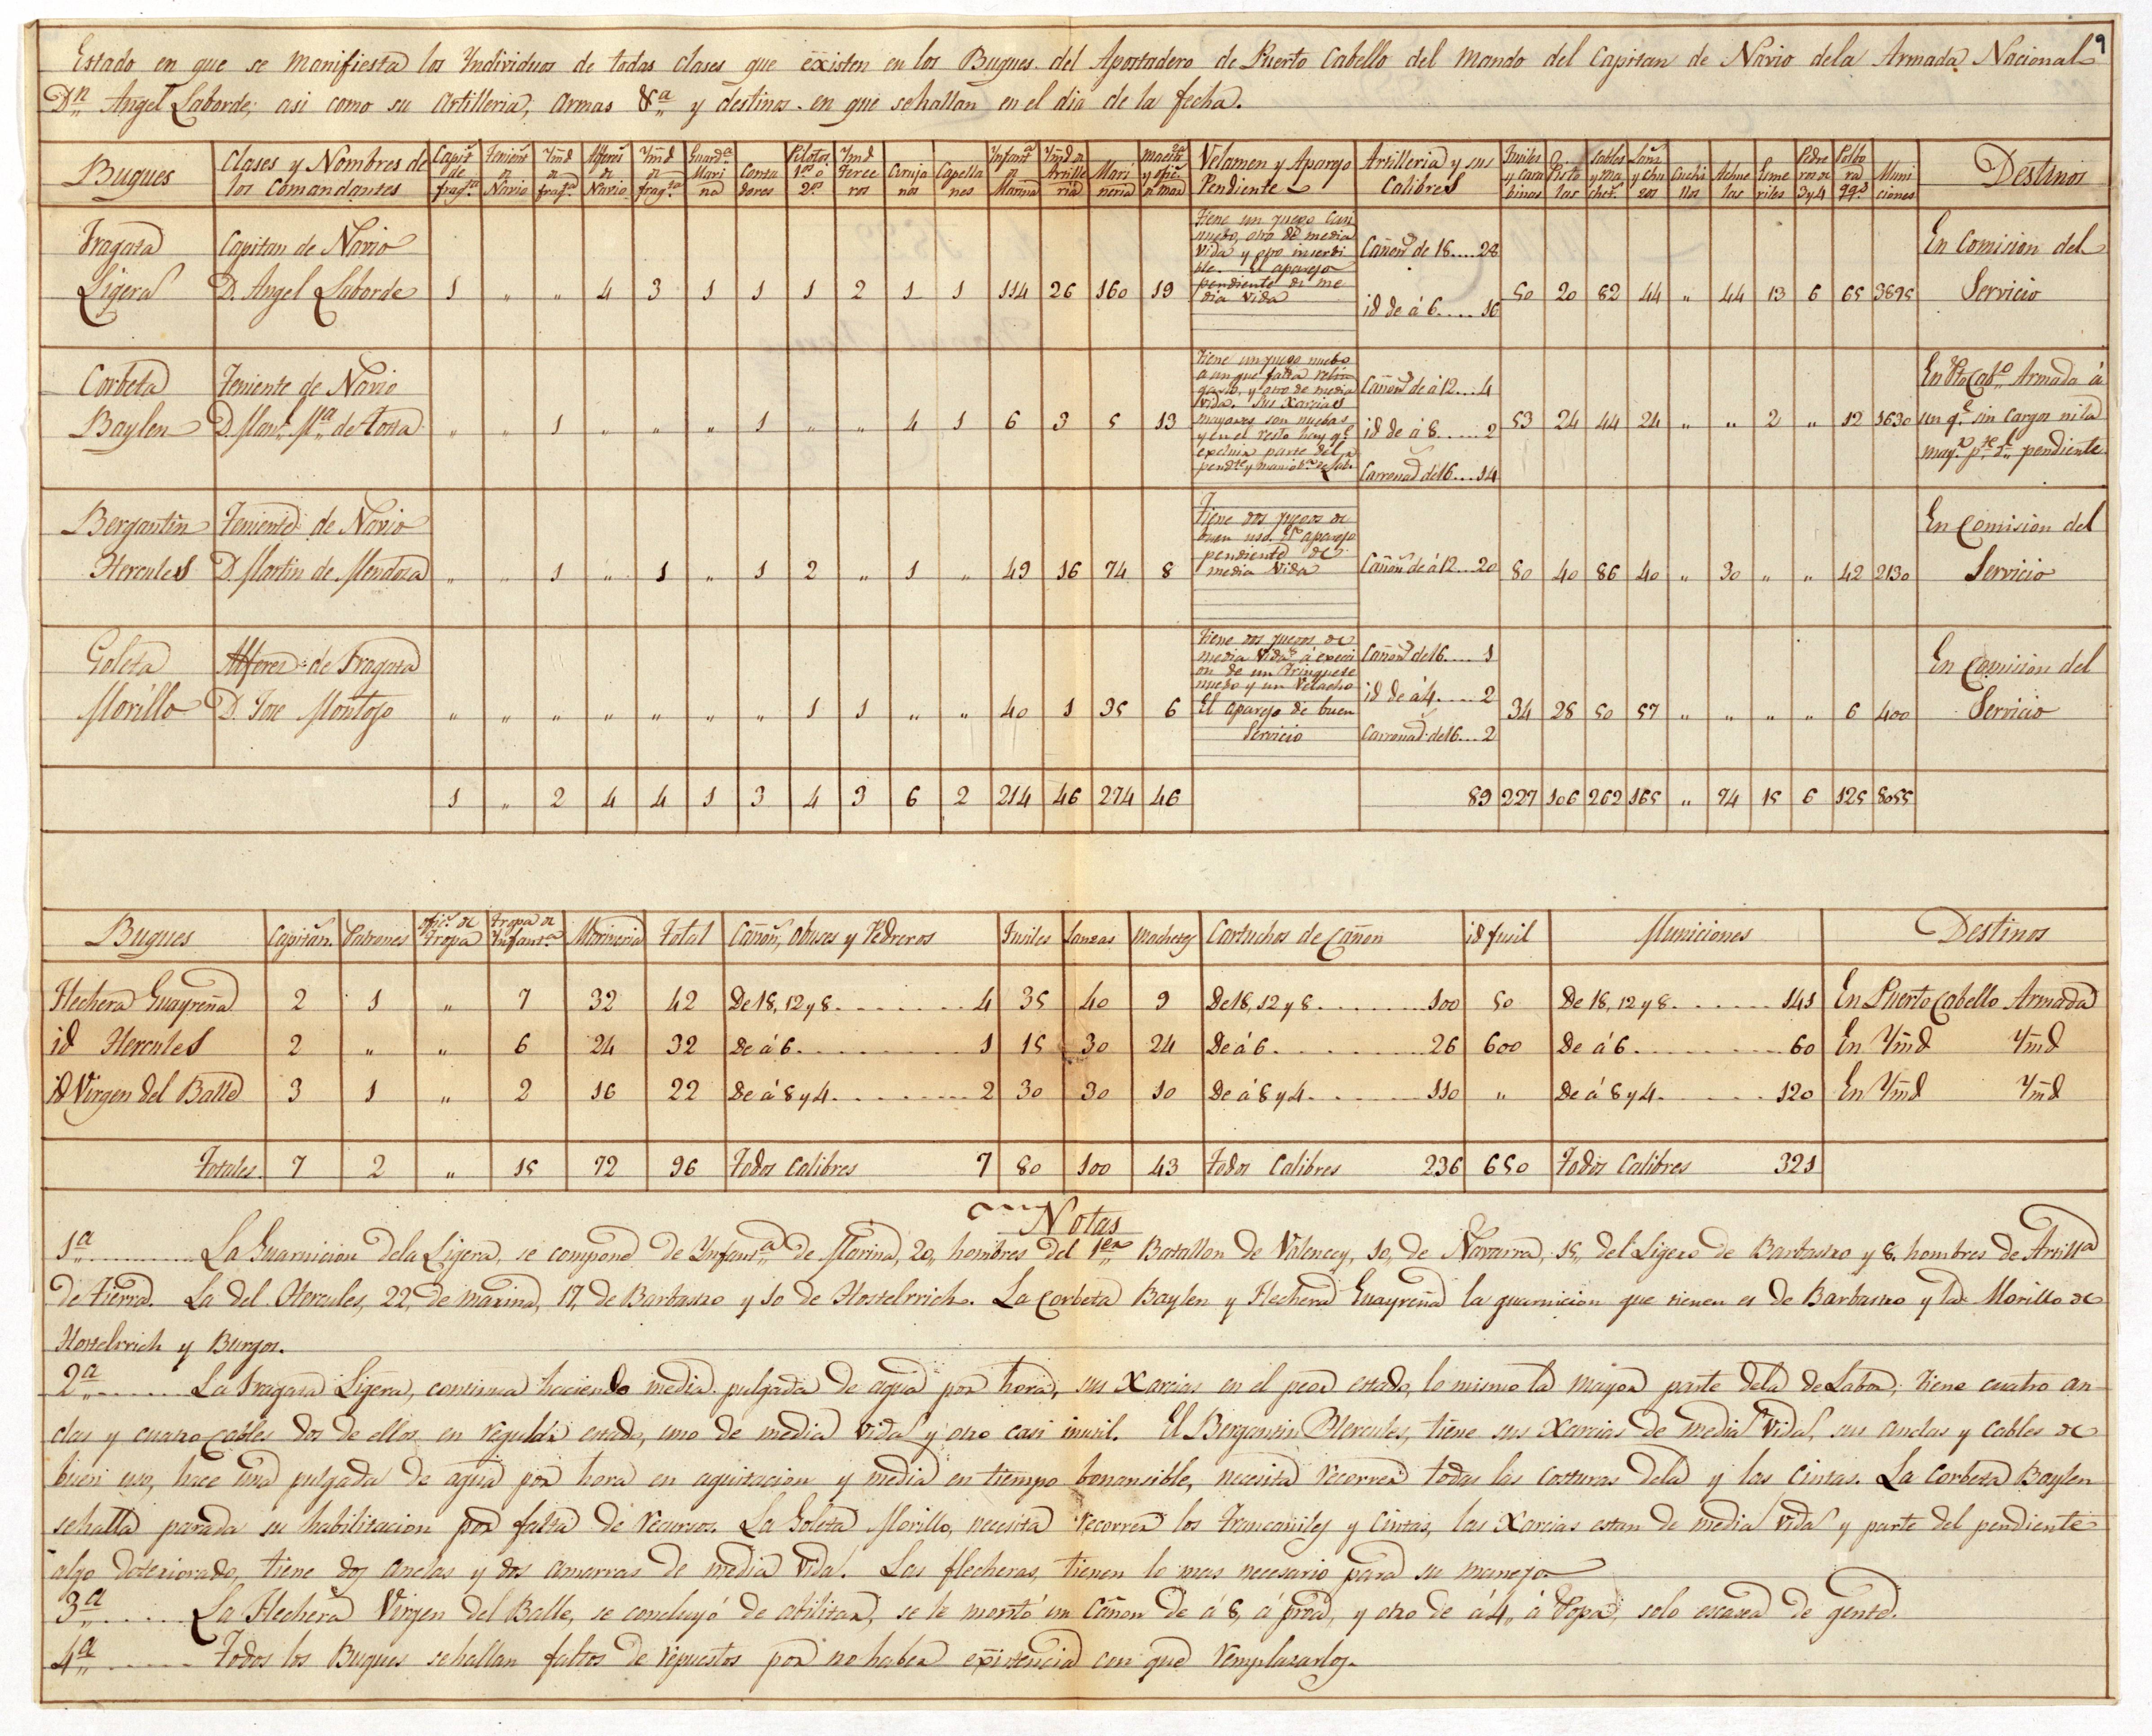 9
Estado en que se Manifiesta los Yndividuos de todas clases que existen en los Buques del Apostadero de Puerto Cabello del Mando del Capitan de Navio dela Armada Nacional
Dn. Angel Laborde; asi como su Artilleria, Armas &a. y destinos en que sehallan en el dia de la fecha.
Buques | Clases y Nombres de los Comandantes | Capits. de fragta. | Tenients. de Navio | Ymd. de fragta. | Alferes. de Navio | Ymd. de fragta. | Guarda. Marina | Contadores | Pilotos 1os. ó 2os. | Ymd. Terceros | Cirujanos | Capellanes | Ynfanta. de Marina | Ymd. de Artilleria | Marineria | Maestra. y ofics. de mar | Velamen y Aparejo Pendiente | Artilleria y sus Calibres | Fusiles y Carabinas | Pistolas | Sables y Machets. | Lanzs. y chuzos | Cuchillos | Achuelas | Esmeriles | Pedreros de 3 y 4 | Polbora qqs. | Municiones | Destinos
Fragata Ligera | Capitan de Navio D. Angel Laborde | 1 | " | " | 4 | 3 | 1 | 1 | 1 | 2 | 1 | 1 | 114 | 26 | 160 | 19 | Tiene un juego Casi nuebo, otro de media Vida y otro inserbible. El aparejo pendiente di media Vida | Cañons. de 18....28 id de á 6.....16 | 50 | 20 | 82 | 44 | " | 44 | 13 | 6 | 65 | 3895 | En Comicion del Servicio
Corbeta Baylen | Teniente de Navio D. Manl. Ma. de Tosta | " | " | 1 | " | " | " | 1 | " | " | 4 | 1 | 6 | 3 | 5 | 13 | Tiene un juego nuebo aunque falta relingarlo, y otro de media Vida. Sus Xarcias mayores son nuebas y en el resto hay qe. excluir parte del pendte. y maniobra. de Labr. | Cañons. de á 12...4 id de á 8.......2 Carronads. de 16...14 | 53 | 24 | 44 | 24 | " | " | 2 | " | 12 | 1630 | En Pto. Cabo. Armada á un qe. sin Cargos nila mayr. pte. dl. pendiente
Bergantin Hercules | Teniente de Navio D. Martin de Mendoza | " | " | 1 | " | 1 | " | 1 | 2 | " | 1 | " | 49 | 16 | 74 | 8 | Tiene dos juegos de buen uso. El aparejo pendiente de media Vida | Cañons. de á 12...20 | 80 | 40 | 86 | 40 | " | 30 | " | " | 42 | 2130 | En Comision del Servicio
Goleta Morillo | Alferez de Fragata D. Jose Montojo | " | " | " | " | " | " | " | 1 | 1 | " | " | 40 | 1 | 35 | 6 | Tiene dos juegos de media Vida á excecion de un Trinquete nuebo y un Velacho El aparejo de buen Servicio | Cañons. de 16.....1 id de á 4......2 Carronads. de 16...2 | 34 | 28 | 50 | 57 | " | " | " | " | 6 | 400 | En Comicion del Servicio
1 | " | 2 | 4 | 4 | 1 | 3 | 4 | 3 | 6 | 2 | 214 | 46 | 274 | 46 | 89 | 227 | 106 | 262 | 165 | " | 74 | 15 | 6 | 125 | 8055
Buques | Capitans. | Patrones | Ofics. de Tropa | Tropa de Ynfanta. | Marineria | Total | Cañons., Obuses y Pedreros | Fusiles | Lanzas | Machetes | Cartuchos de Cañon | id fusil | Municiones | Destinos
Flechera Guayreña | 2 | 1 | " | 7 | 32 | 42 | De 18, 12 y 8........4 | 35 | 40 | 9 | De 18, 12 y 8........100 | 50 | De 18, 12 y 8.......141 | En Puerto Cabello Armada
id Hercules | 2 | " | " | 6 | 24 | 32 | De á 6..........1 | 15 | 30 | 24 | De á 6..........26 | 600 | De á 6..........60 | En Ymd Ymd
id Virgen del Balle | 3 | 1 | " | 2 | 16 | 22 | De á 8 y 4.........2 | 30 | 30 | 10 | De á 8 y 4........110 | " | De á 8 y 4........120 | En Ymd Ymd
Totales | 7 | 2 | " | 15 | 72 | 96 | Todos Calibres 7 | 80 | 100 | 43 | Todos Calibres 236 | 650 | Todos Calibres 321
Notas
1a. ........ La Guarnicion dela Ligera, se compone de Ynfanta. de Marina, 20,, hombres del 1er. Batallon de Valencey, 10,, de Navarra, 15,, del Ligero de Barbastro y 8. hombres de Artilla.
de tierra. La del Hercules, 22,, de marina, 17,, de Barbastro y 10 de Hostelrrich. La Corbeta Baylen y Flechera Guayreña la guarnicion que tienen es de Barbastro y la Morillo de
Hostelrrich y Burgos.
2a. ........ La Fragata Ligera, continua haciendo media pulgada de agua por hora, sus Xarcias en el peor estado, lo mismo la mayor parte dela de Labor; tiene cuatro an-
clas y cuatro Cables dos de ellos en regular estado, uno de media vida y otro casi inutil. El Bergantin Hercules, tiene sus Xarcias de media Vida, sus anclas y cables de
buen uso, hace una pulgada de agua por hora en aguitacion y media en tiempo bonansible, necesita recorrer todas las costuras dela y las cintas. La Corbeta Baylen
sehalla parada su habilitacion por falta de recursos. La Goleta Morillo, necesita recorrer los Trancaniles y Cintas, las Xarcias estan de media Vida y parte del pendiente
algo deteriorado, tiene dos anclas y dos amarras de media Vida. Las flecheras, tienen lo mas necesario para su manejo.
3a. ...... La Flechera Virgen del Balle, se concluyó de abilitar, se le montó un Cañon de á 8, á proa, y otro de á 4,, á Popa, solo escasea de gente.
4a. ........ Todos los Buques sehallan faltos de repuestos por no haber existencia con que remplasarlos.